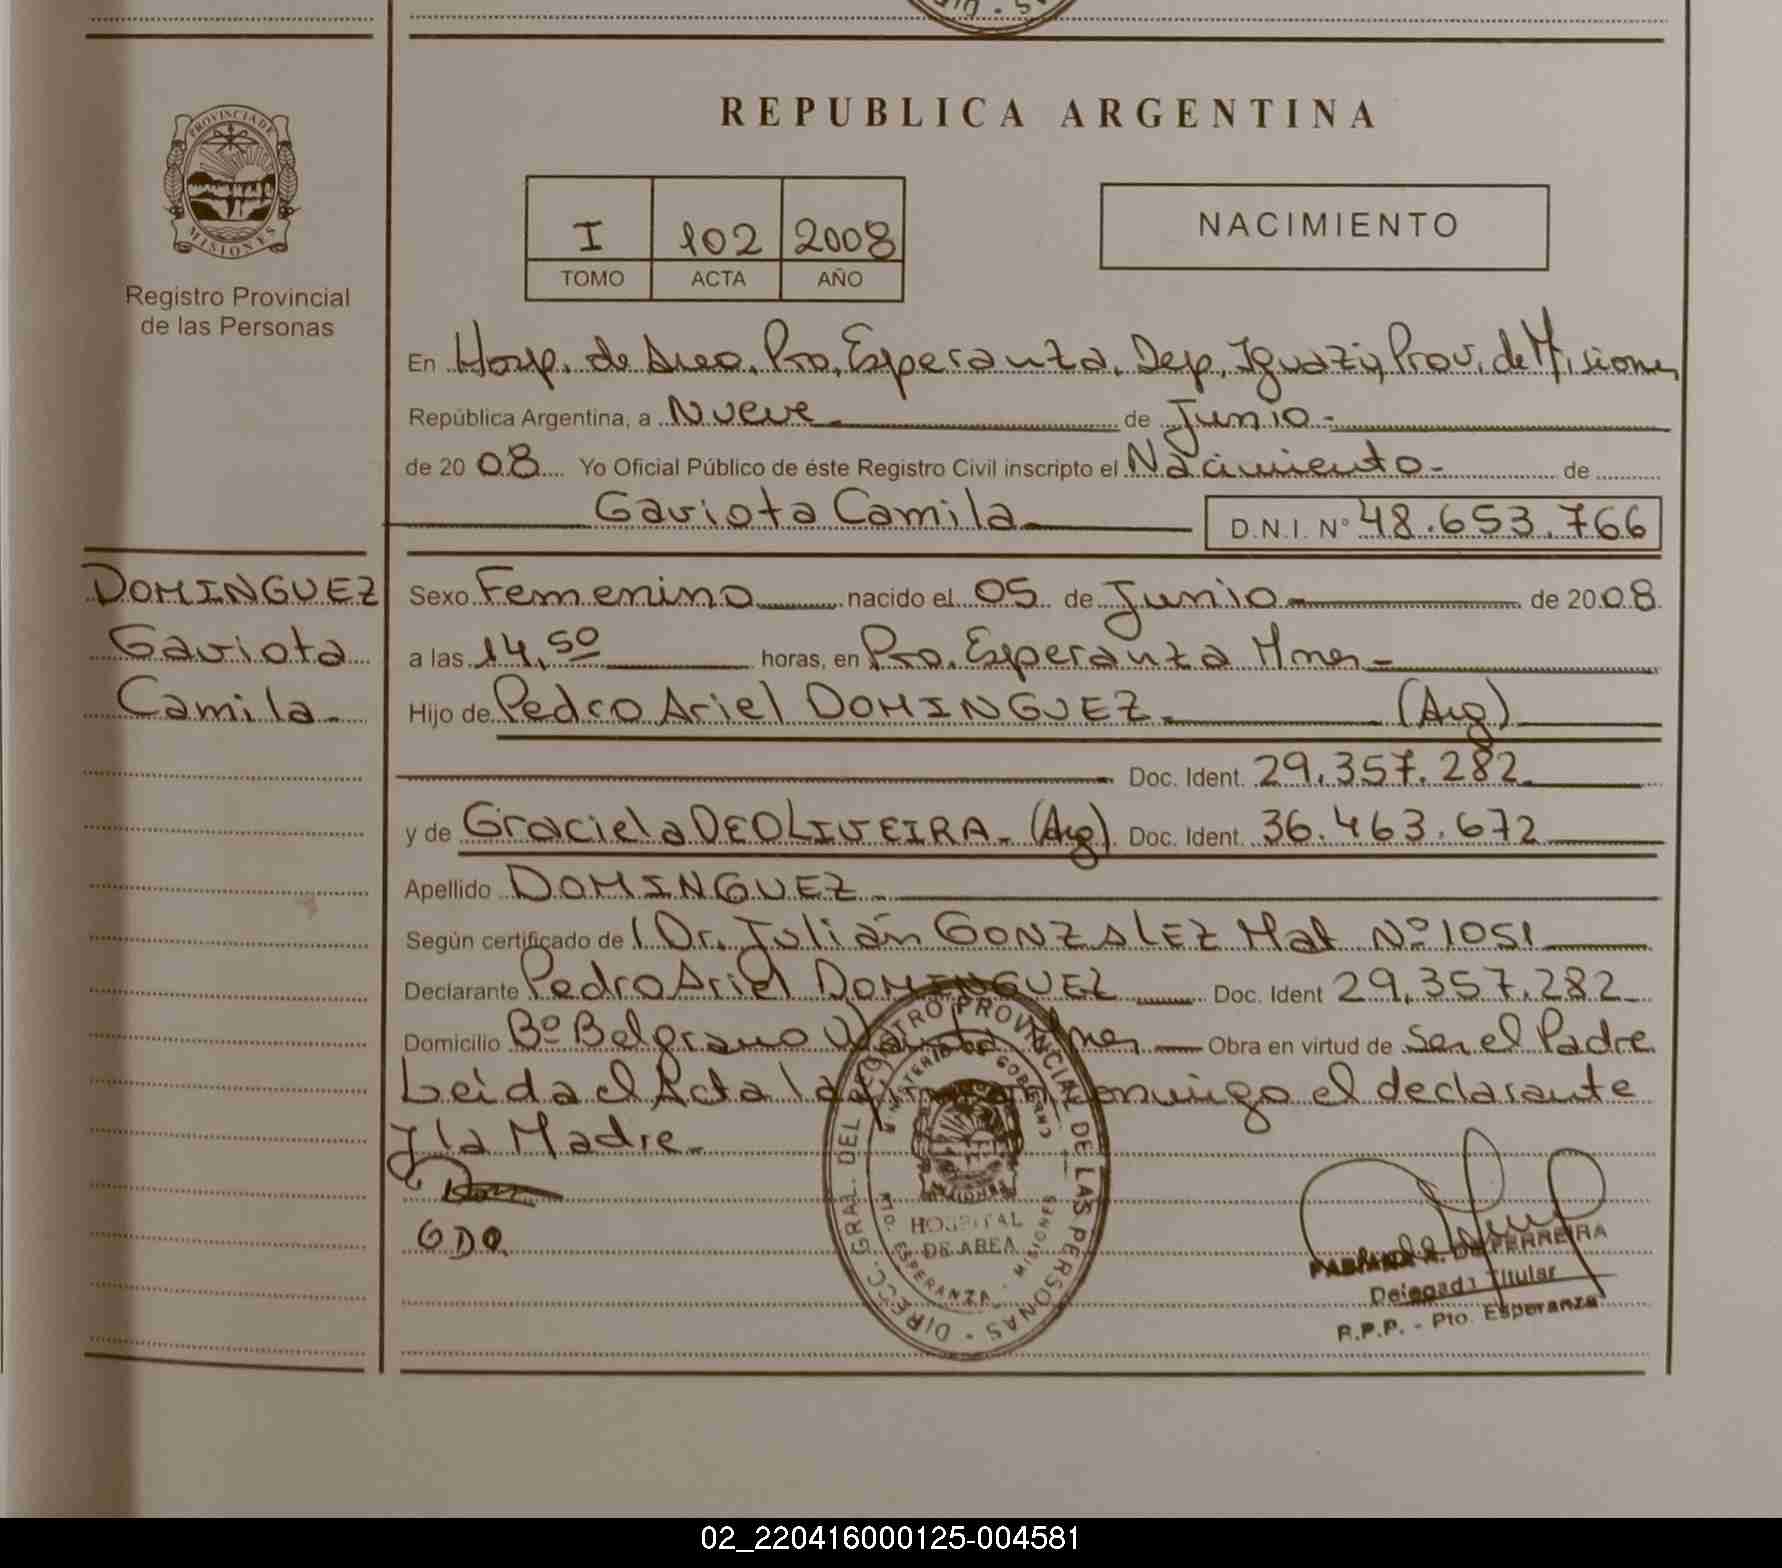 REPUBLICA ARGENTINA
PROVINCIA DE MISIONES
Registro Provincial
de las Personas
I 102 2008
TOMO ACTA AÑO
NACIMIENTO
En Hosp. de Area, Pto, Esperanza, Dep, Iguazú, Prov. de Misiones
República Argentina, a Nueve de Junio
de 2008 Yo Oficial Público de éste Registro Civil inscripto el Nacimiento de
Gaviota Camila D.N.I. N° 48.653.766
DOMINGUEZ
Gaviota
Camila
Sexo Femenino nacido el 05 de Junio de 2008
a las 14,50 horas, en Pto. Esperanza Mnes
Hijo de Pedro Ariel DOMINGUEZ (Arg)
Doc. Ident. 29.357.282
y de Graciela DEOLIVEIRA (Arg) Doc. Ident. 36.463.672
Apellido DOMINGUEZ
Según certificado de Dr. Julián GONZALEZ Mat Nº 1051
Declarante Pedro Ariel DOMINGUEZ Doc. Ident 29.357.282
Domicilio Bº Belgrano Wanda Mnes Obra en virtud de Ser el Padre
Leida el Acta la firman conmigo el declarante
Y la Madre
GDO
DIRECC. GRAL. DEL REGISTRO PROVINCIAL DE LAS PERSONAS
MINISTERIO DE GOBIERNO
HOSPITAL
DE AREA
PTO. ESPERANZA - MISIONES
DE FERREIRA
Delegada Titular
R.P.P. - Pto. Esperanza
02_220416000125-004581